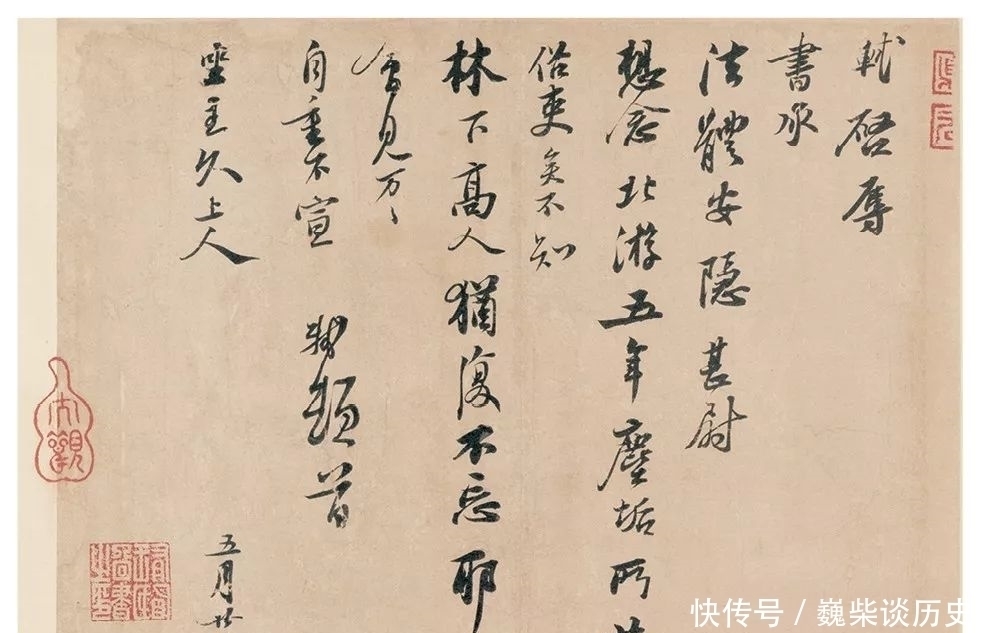 軾啓辱
書承
法體安隱甚尉
想念北游五年塵垢所
俗吏矣不知
林下高人猶復不忘耶
會見万〻
自重不宣 軾頓首
坐主久上人 五月廿
快传号 / 巍柴谈历史